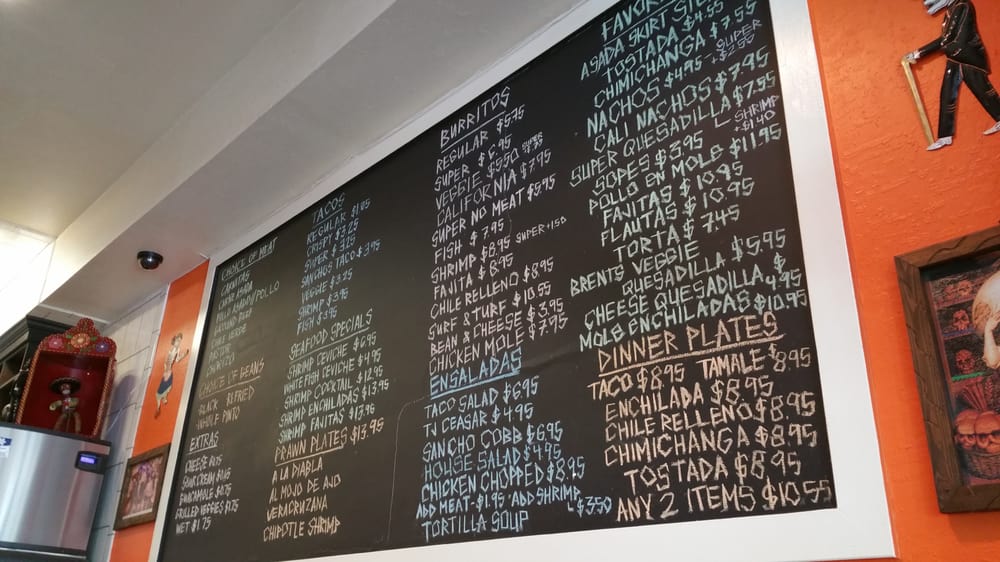 CHOICE OF MEAT
CARNITAS
CARNE ASADA
POLLO
CHILE VERDE
CHORIZO
CHOICE OF BEANS
BLACK REFRIED
WHOLE PINTO
EXTRAS
CHEESE
SOUR CREAM
GUACAMOLE
GRILLED VEGGIES $1.75
WET $1.75
TACOS
REGULAR
CRISPY $3.25
SUPER $3.25
SANCHOS TACO $3.95
VEGGIE $3.25
SHRIMP $3.95
FISH $3.95
SEAFOOD SPECIALS
SHRIMP CEVICHE $6.95
WHITE FISH CEVICHE $4.95
SHRIMP COCKTAIL $12.95
SHRIMP ENCHILADAS $13.95
SHRIMP FAJITAS
PRAWN PLATES $13.95
A LA DIABLA
AL MOJO DE AJO
VERACRUZANA
CHIPOTLE SHRIMP
BURRITOS
REGULAR $5.75
SUPER $6.95
VEGGIE $5.50 SUPER
CALIFORNIA $7.95
SUPER NO MEAT $5.95
FISH $7.95
SHRIMP $8.95 SUPER +1.50
FAJITA $8.95
CHILE RELLENO $8.95
SURF & TURF $10.55
BEAN & CHEESE $3.95
CHICKEN MOLE $7.95
ENSALADAS
TACO SALAD $6.95
TJ CEASAR $4.95
SANCHO COBB $6.95
HOUSE SALAD $4.95
CHICKEN CHOPPED $8.95
ADD MEAT-$1.95 ADD SHRIMP
3.50
TORTILLA SOUP
ASADA SKIRT
TOSTADA $4.55
CHIMICHANGA $7.55
NACHOS $4.95 +SUPER
CALI NACHOS $7.95
SUPER QUESADILLA $7.55
SOPES $3.95 SHRIMP
+$1.40
POLLO EN MOLE $11.95
FAJITAS $10.95
FLAUTAS $10.95
TORTA $7.45
BRENTS VEGGIE
QUESADILLA $5.95
CHEESE QUESADILLA $4.95
MOLE ENCHILADAS $10.95
DINNER PLATES
TACO $8.95 TAMALE $8.95
ENCHILADA $8.95
CHILE RELLENO $8.95
CHIMICHANGA $8.95
TOSTADA $8.95
ANY 2 ITEMS $10.55